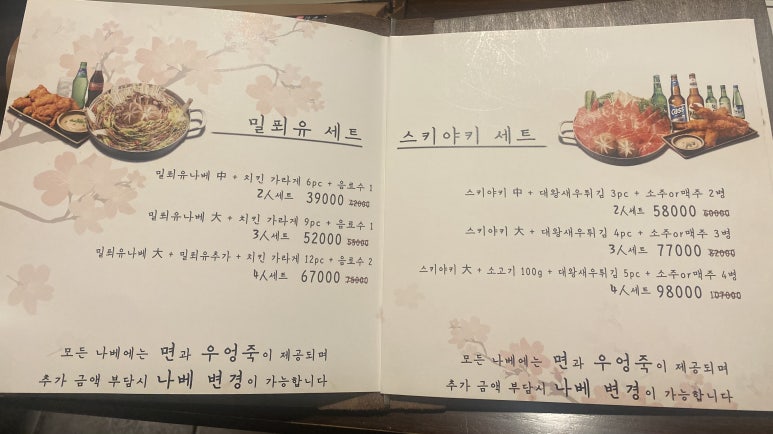 밀푀유 세트
밀푀유나베 中 + 치킨 가라게 6pc + 음료수 1
2人세트 39000
밀푀유나베 大 + 치킨 가라게 9pc + 음료수 1
3人세트 52000
밀푀유나베 大 + 밀푀유추가 + 치킨 가라게 12pc + 음료수 2
4人세트 67000
모든 나베에는 면과 우엉죽이 제공되며
추가 금액 부담시 나베 변경이 가능합니다
스키야키 세트
스키야키 中 + 대왕새우튀김 3pc + 소주or맥주 2병
2人세트 58000
스키야키 大 + 대왕새우튀김 4pc + 소주or맥주 3병
3人세트 77000 82000
스키야키 大 + 소고기 100g + 대왕새우튀김 5pc + 소주or맥주 4병
4人세트 98000 107000
모든 나베에는 면과 우엉죽이 제공되며
추가 금액 부담시 나베 변경이 가능합니다